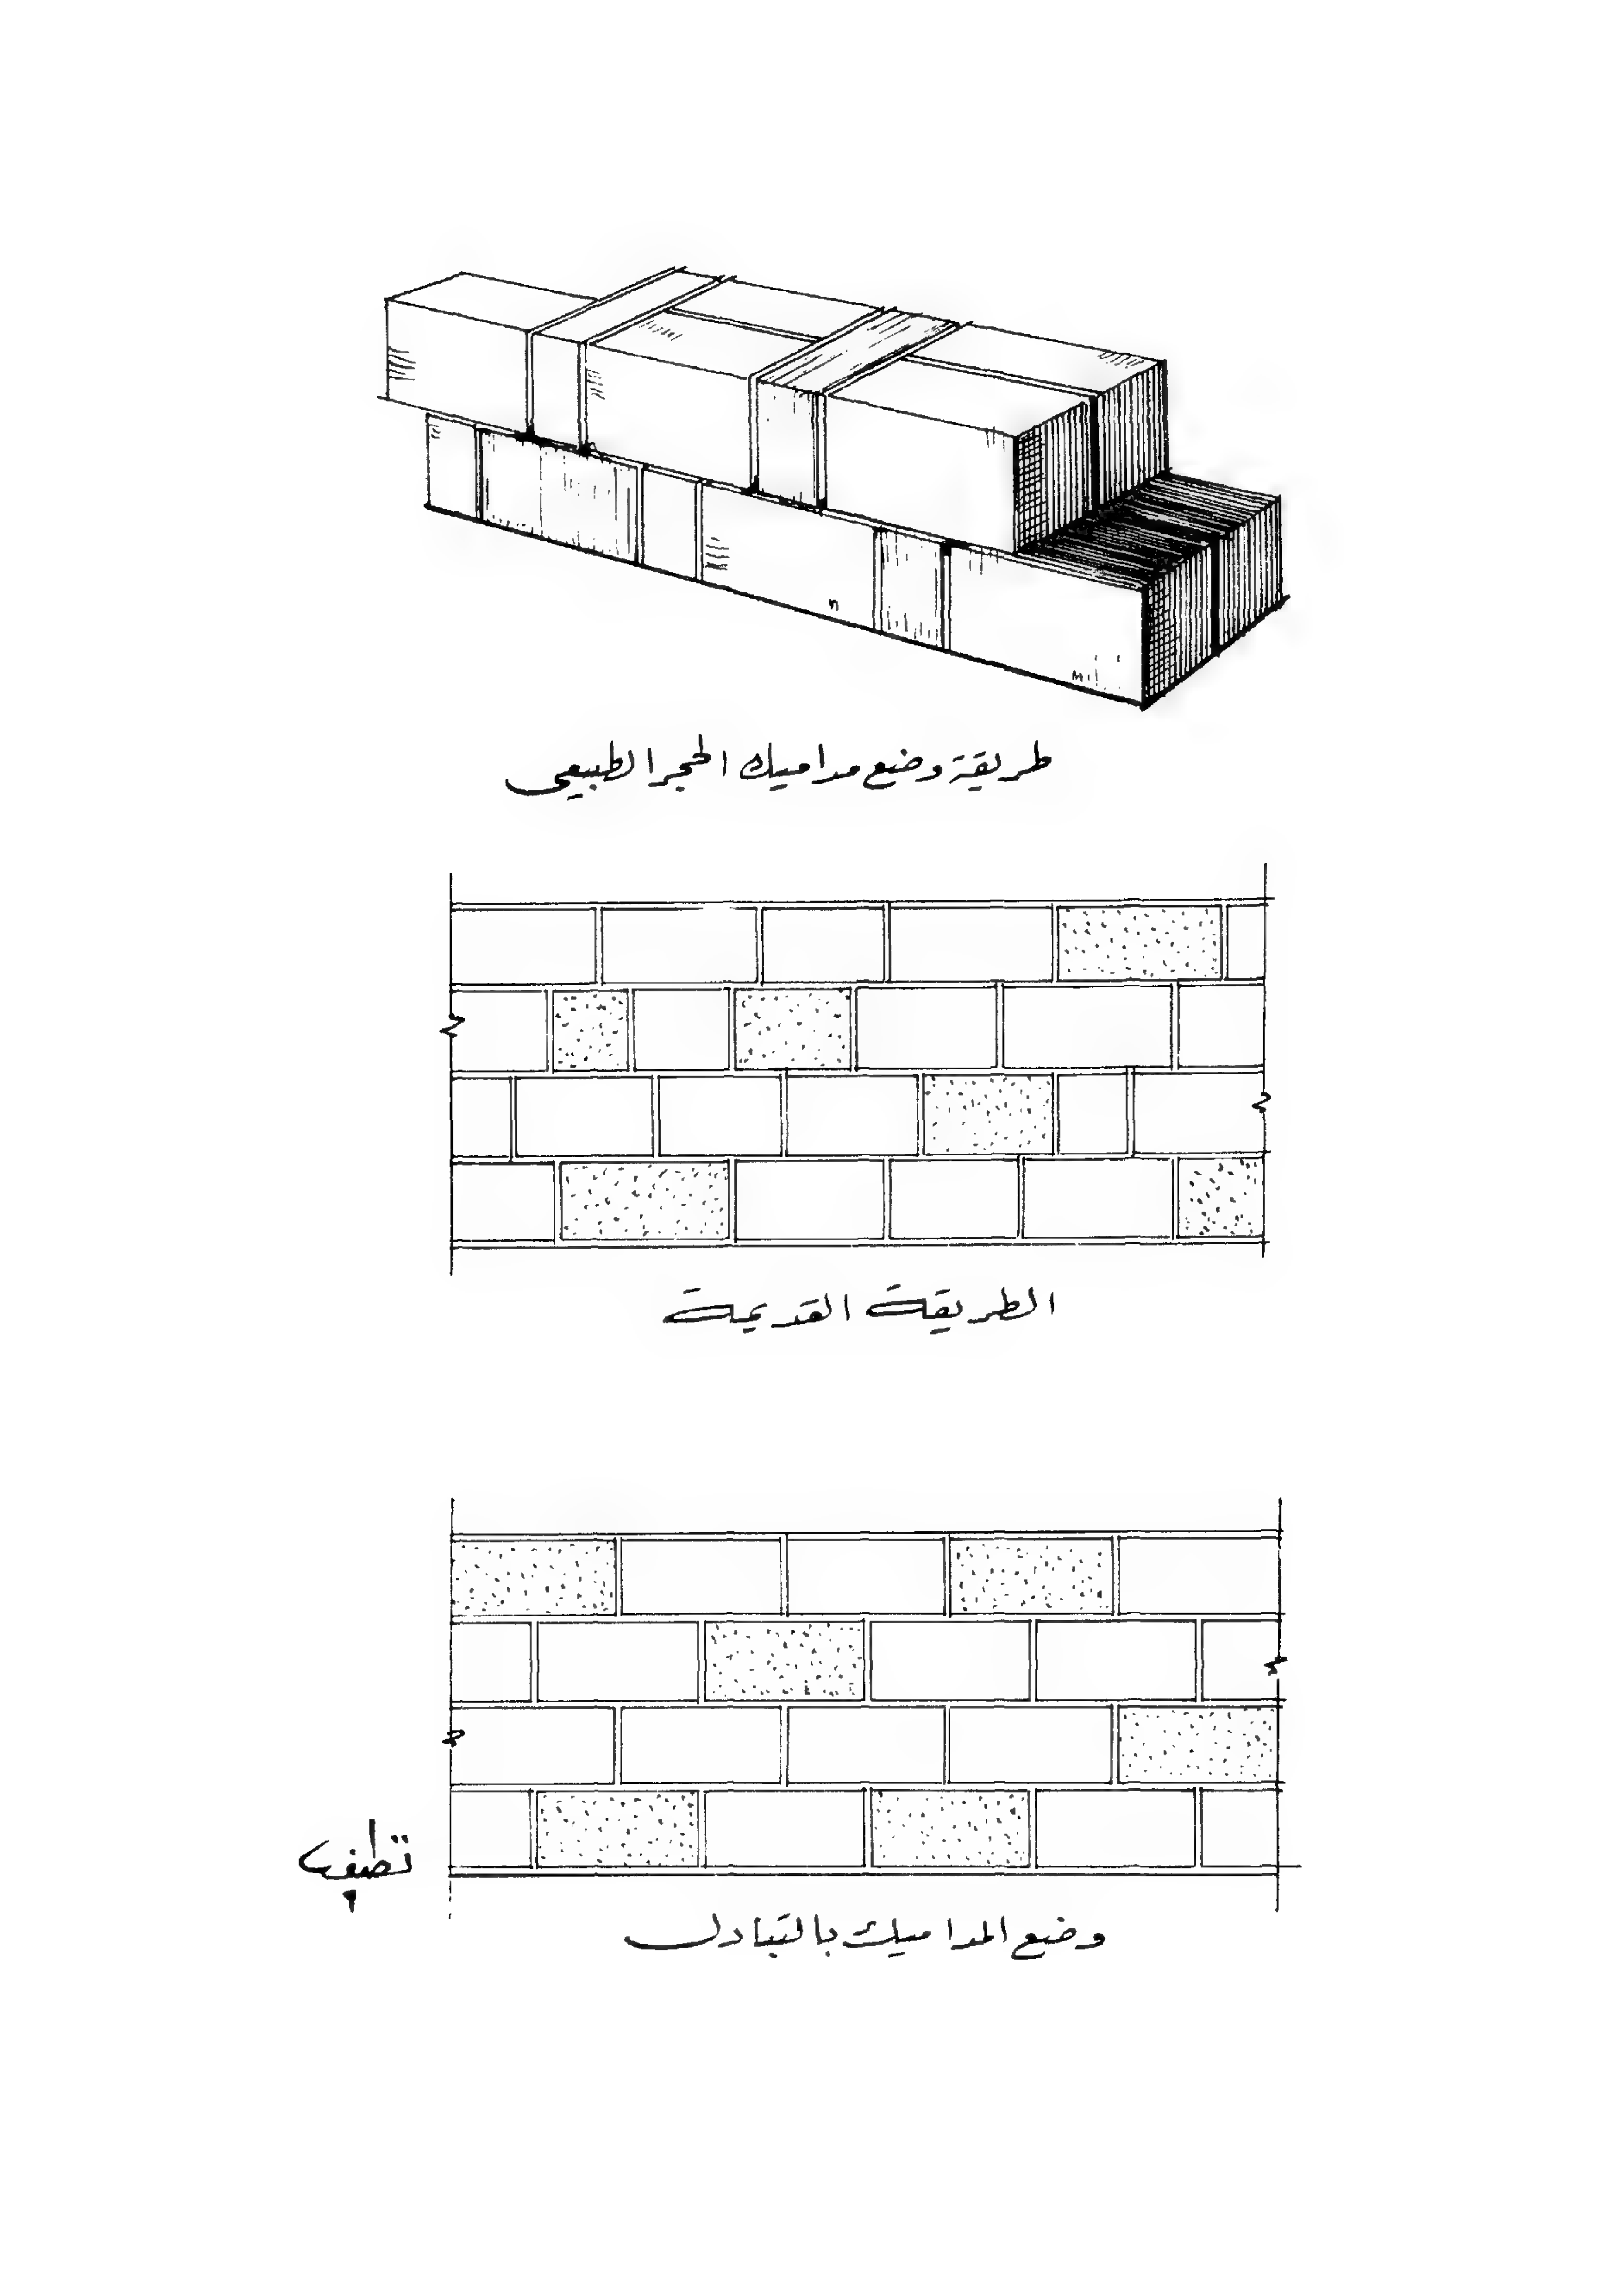 طريقة وضع مداميك الحجر الطبيعى
الطريقة القديمة
وضع المداميك بالتبادل